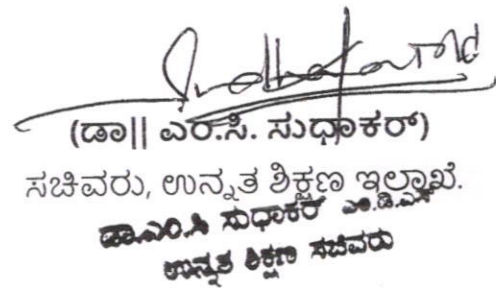 (ಡಾ|| ಎಂ.ಸಿ. ಸುಧಾಕರ್)
ಸಚಿವರು, ಉನ್ನತ ಶಿಕ್ಷಣ ಇಲ್ಲಾಖೆ.
ಡಾ.ಎಂ.ಸಿ ಸುಧಾಕರ್ ಎಂ.ಡಿ.ಎಸ್
ಉನ್ನತ ಶಿಕ್ಷಣ ಸಚಿವರು